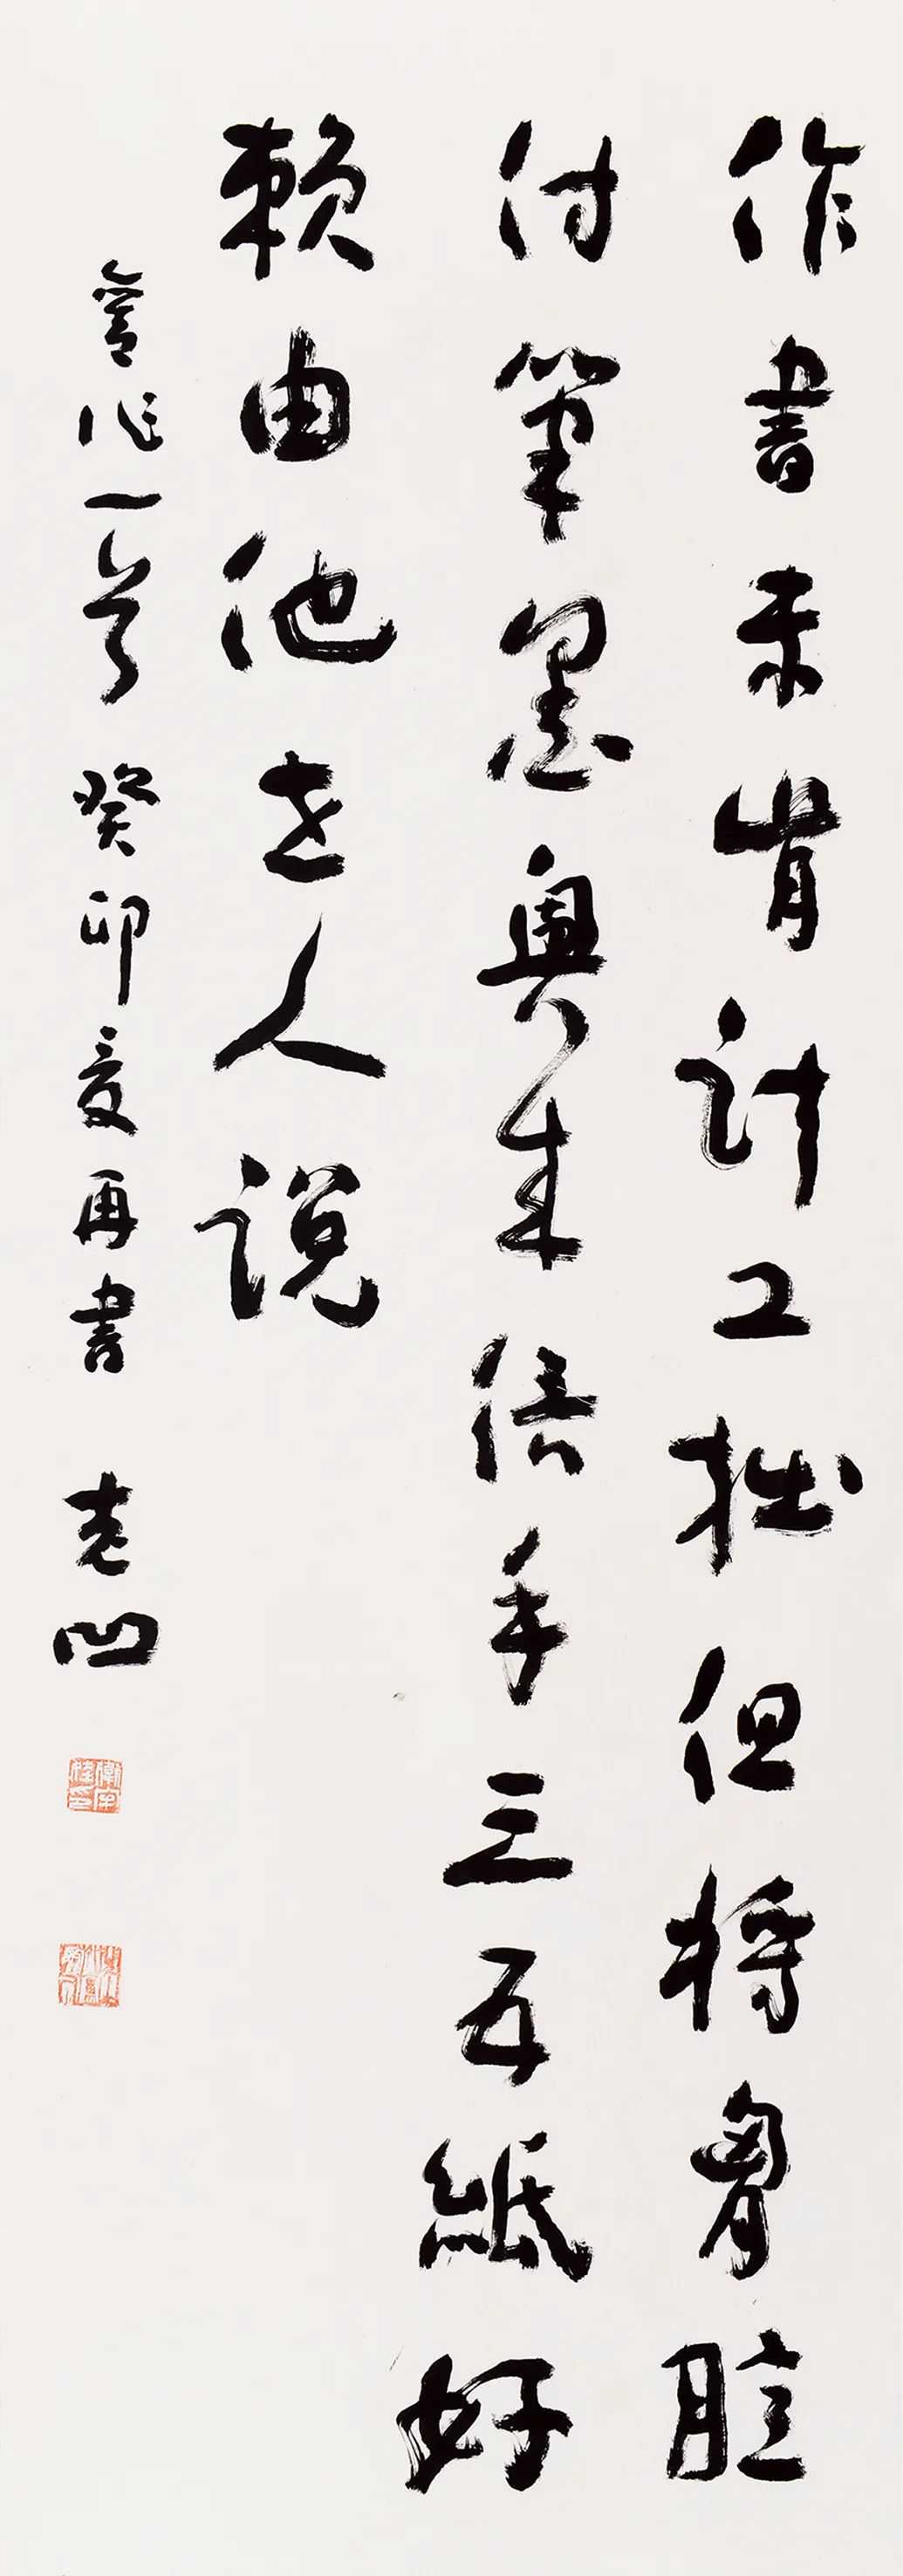 作書未肯計工拙但將胷腔
付筆墨興來信手三五紙好
賴由他世人說
舊作一首 癸卯夏再書 老凹